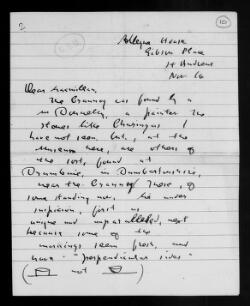 Gibson Place
St Andrews
Nov 10
Dear Macmillan,
The Crannog was found by a
Mr Donnelly, a painter. The
stones like Churingas I
have not seen but, at the
Museum here, are others of
the sort, found at
Dumbuie, in Dumbartonshire,
near the Crannog. These, of
some standing now, lie under
suspicion, first as
unique and unparalleled, next
because some of the
markings seem fresh, and
have "perpendicular sides"
( not )